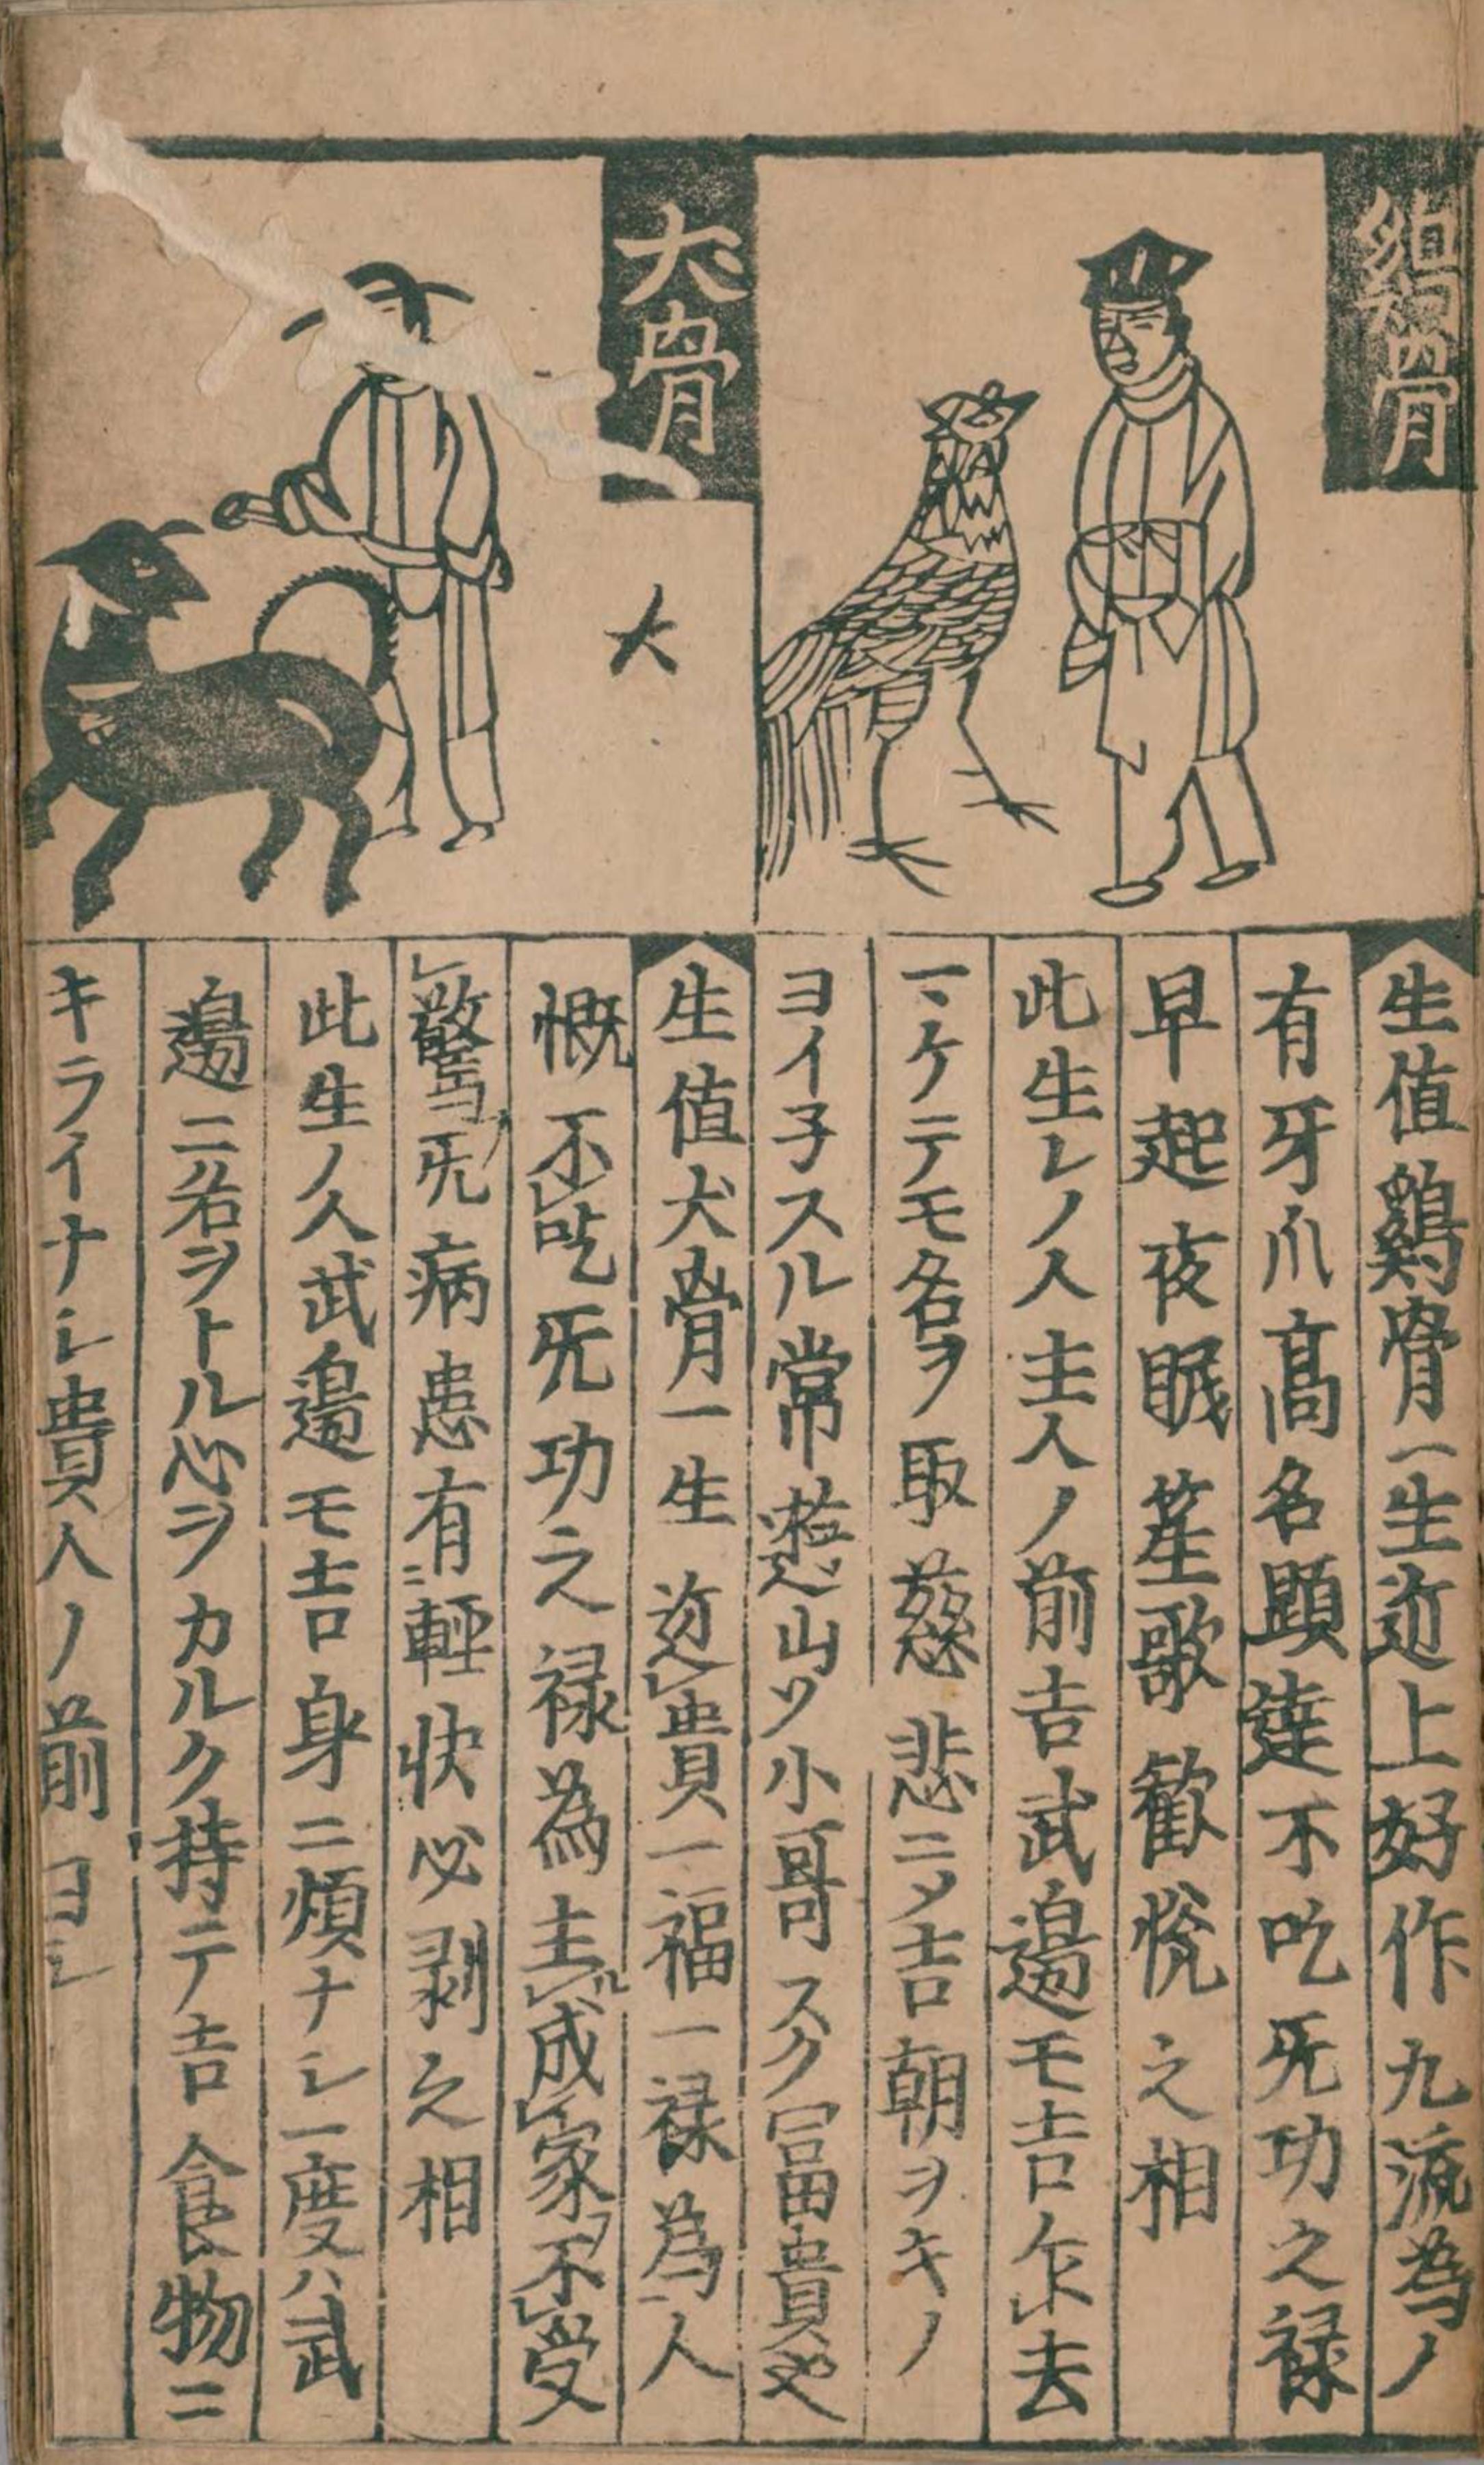 鷄骨
犬骨
犬
生値鷄骨一生近上好作九流為ノ
有牙爪高名顕達不吃旡功之禄
早起夜眠笙歌歓悦之相
此生レノ人主人ノ前吉武邉モ吉乍去
マケテモ名ヲ取慈悲ニメ吉朝ヲキノ
ヨイ子スル常遊山ツ小哥スク冨貴也
生値犬骨一生近貴一福一禄為人
慨不吃旡功之禄為主成家不受
驚旡病患有輕快必剥之相
此生ノ人武邉モ吉身ニ煩ナシ一度ハ武
邉ニ名ヲトル心ヲカルク持テ吉食物ニ
キライナシ貴人ノ前ヨシ